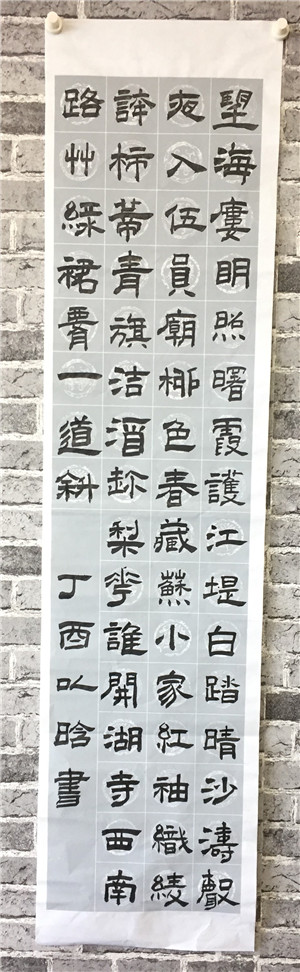 望海廔明照曙霞護江堤白踏晴沙濤聲
夜入伍員廟柳色春藏蘇小家紅袖織綾
誇柿蒂青旗沽酒趁梨花誰開湖寺西南
路艸綠裙腰一道斜 丁酉以晗書